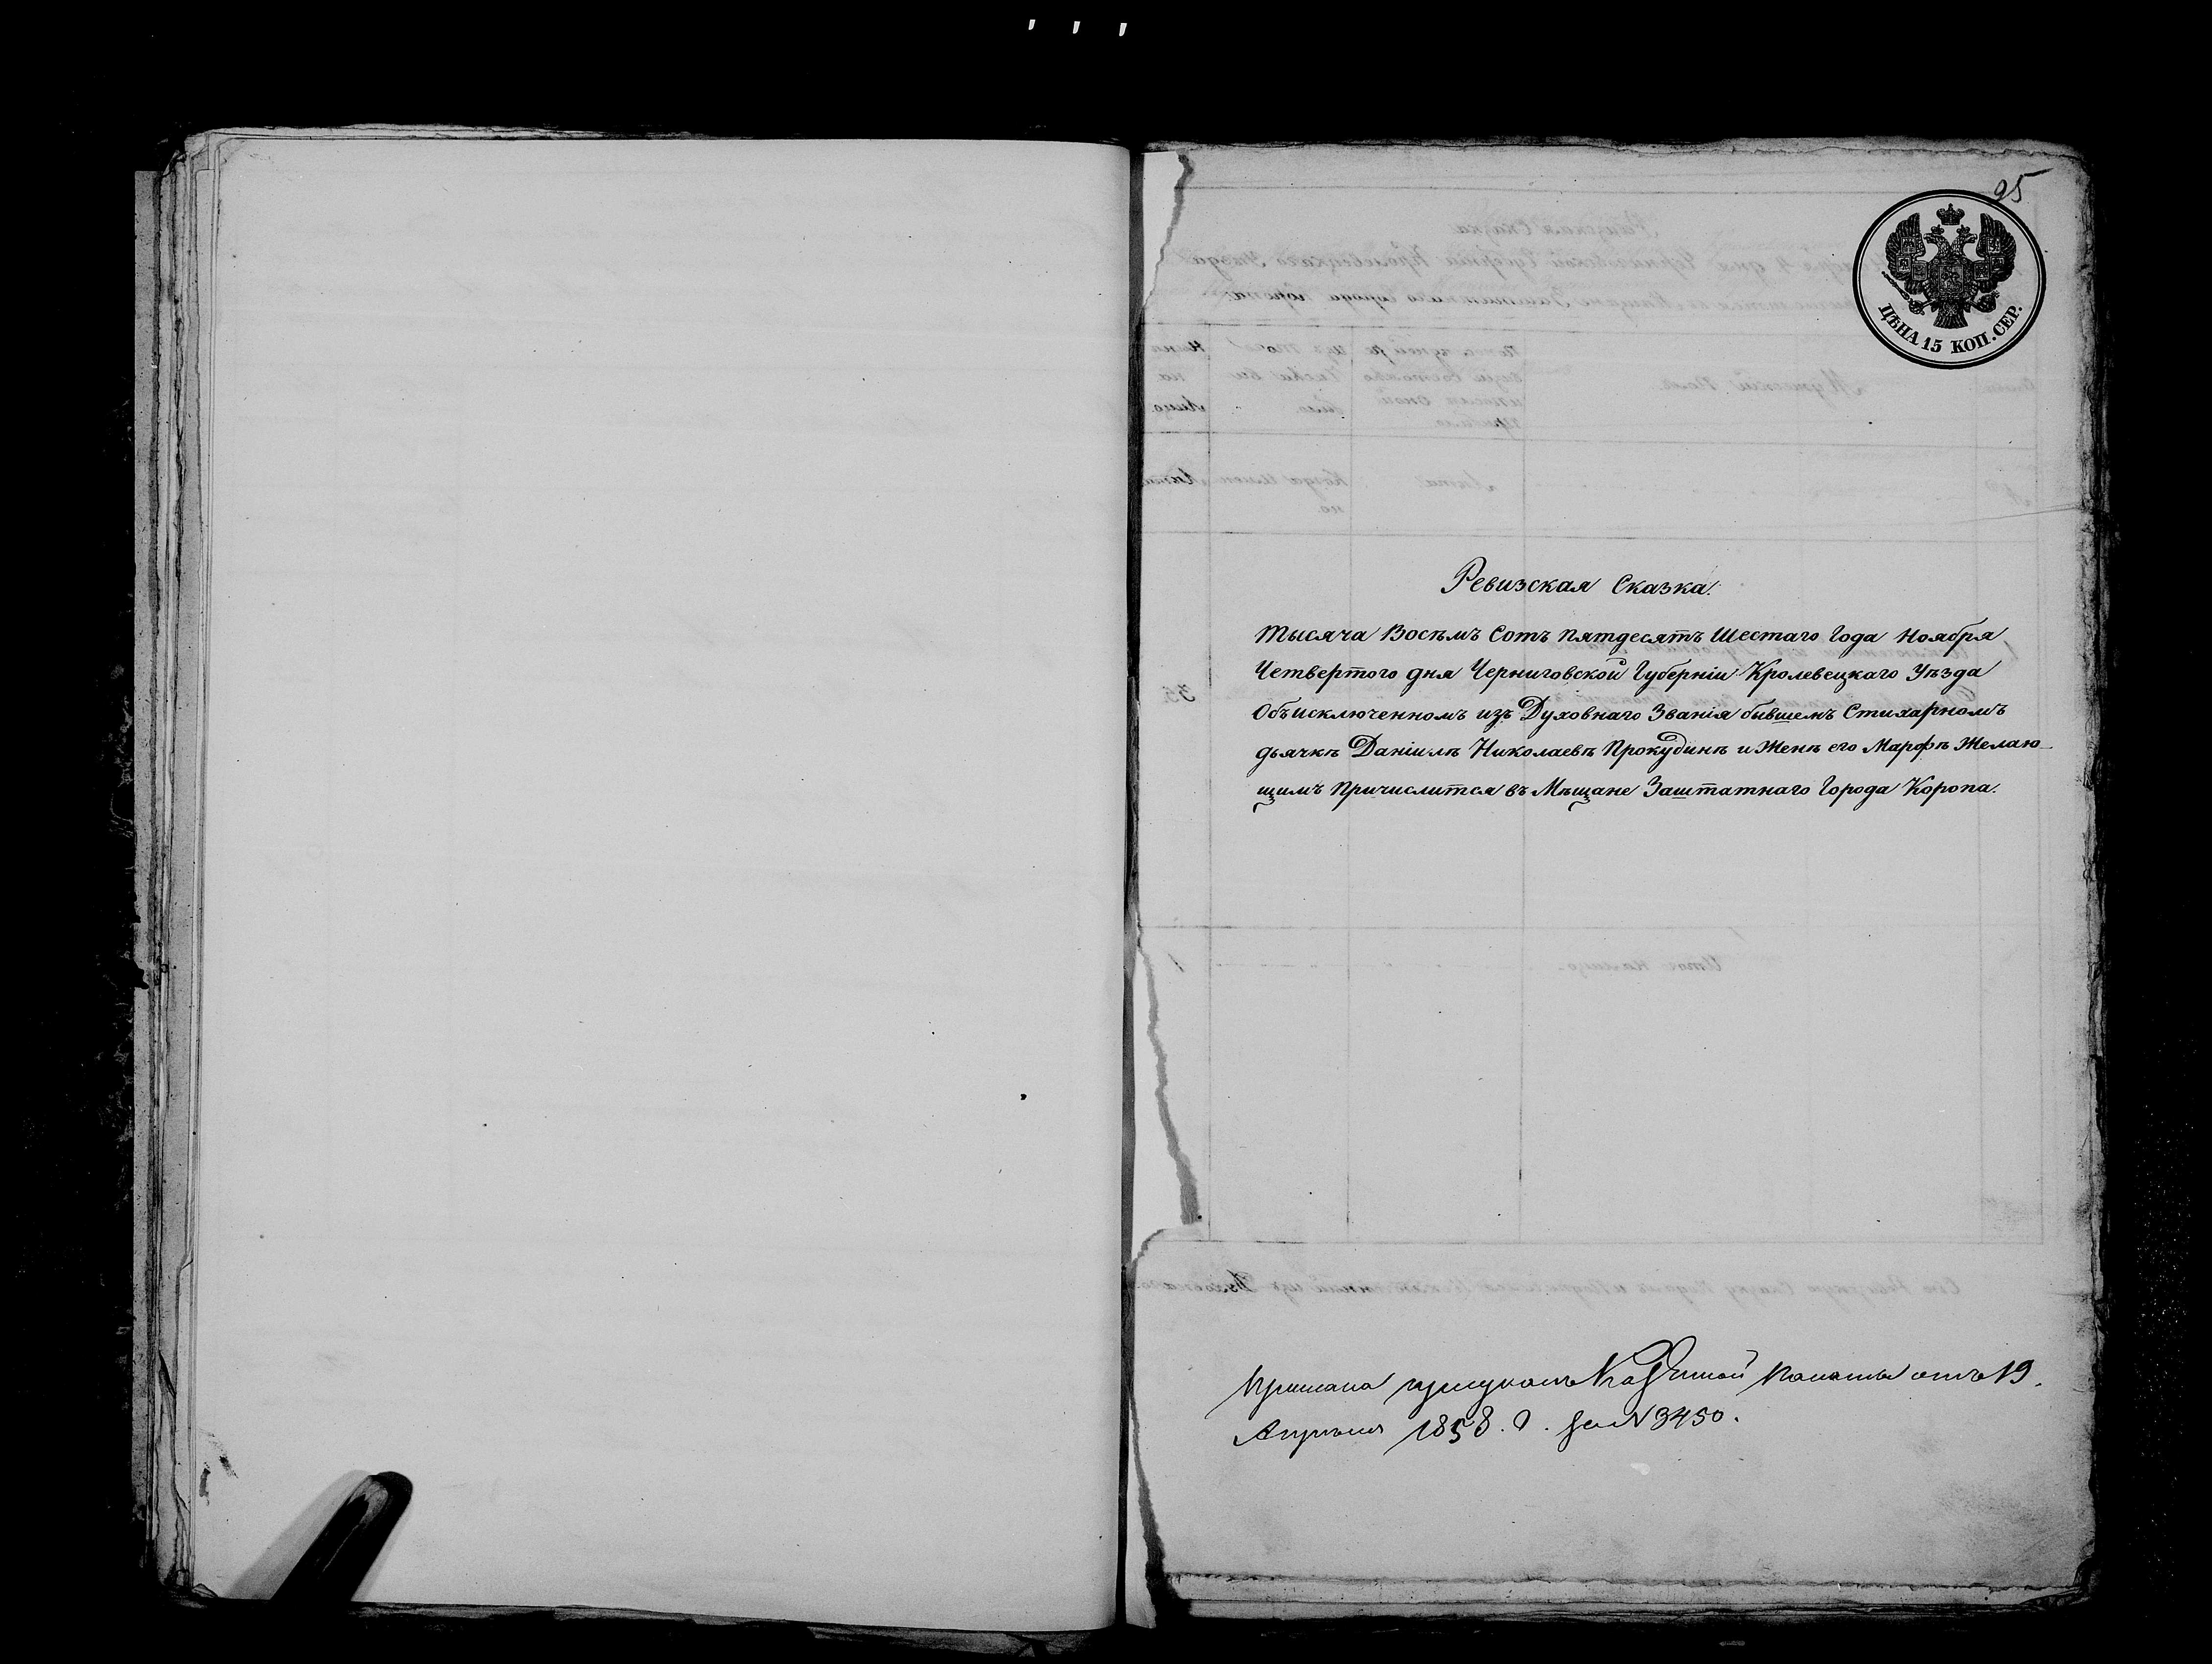 95
ЦѢНА 15 КОП. СЕР.
Ревизская Сказка.
Тысяча Восѣмъ Сотъ пятдесятъ Шестаго Года Ноября
Четвертого дня Черниговской Губерніи Кролевецкаго Уѣзда
Объ исключенномъ изъ Духовнаго Званія бывшемъ Стихарномъ
дьячкѣ Даніилѣ Николаевѣ Прокудинѣ и Женѣ его Марфѣ Желаю
щимъ Причислится въ Мѣщане Заштатнаго Города Коропа.
Казенной Палаты отъ 19.
Апрѣля 1858. г. за № 3450.